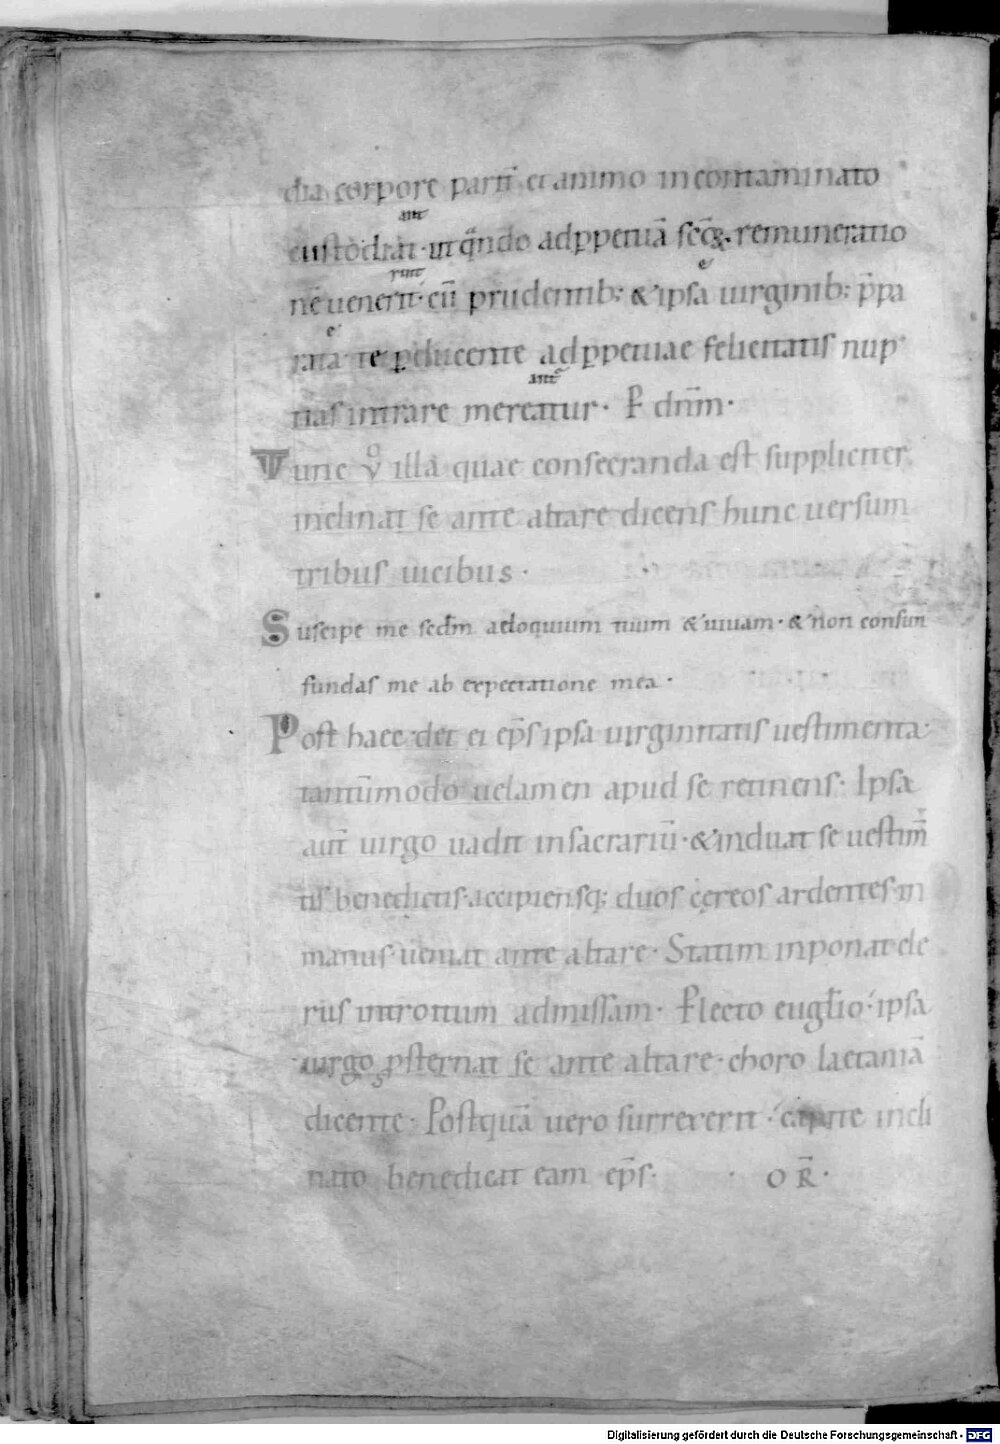 dia corpore parit̄ et animo incontaminato
ant
custodiat· ut q̄ndo adp̱petuā sc̄oꝝ remuneratio
rint e
nē uenerit· cū prudentib; & ipsa uirginib; p̄pa
e
rata te ꝑducente adꝑpetuae felicitatis nup
antͬ
tias intrare mereatur· P dn̄m·
Tunc v̊ illa quae consecranda est suppliciter
inclinat se ante altare dicens hunc uersum
tribus uicibus·
Suscipe me secd̄m aeloquium tuum & uiuam· & non consun̄
fundas me ab expectatione mea·
Post haec det ei ep̄s ipsa uirginitatis uestimenta·
tantūmodo uelamen apud se retinens· Ipsa
aut̄ uirgo uadit insacrariū· & induat se uestim̄
tis benedictis· accipiensq; duos cereos ardentes in
manus· ueniat ante altare· Statim inponat cle
rus introitum admissam· P lecto eugl̄io· ipsa
uirgo ꝓsternat se ante altare· choro laetaniā
dicente· Postquā uero surrexerit· capite incli
nato benedicat eam ep̄s· OR̄·
Digitalisierung gefördert durch die Deutsche Forschungsgemeinschaft · DFG